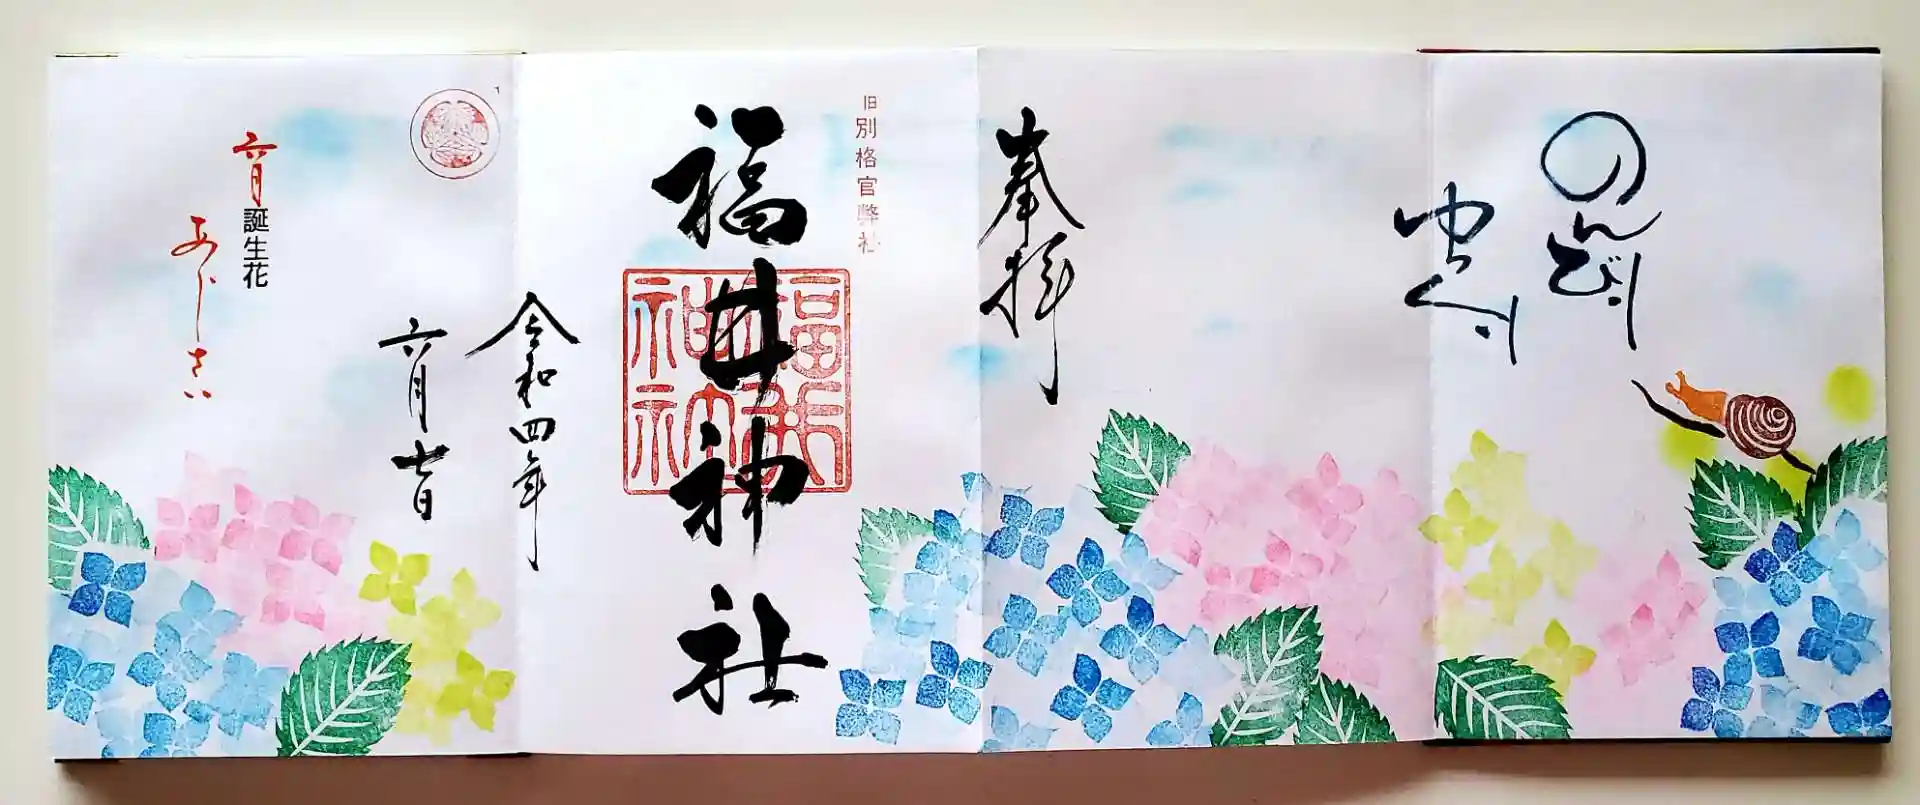 のんびり
ゆっくり
奉拝
旧別格官幣社
福井神社
福井神社
令和四年
六月七日
六月誕生花
あじさい